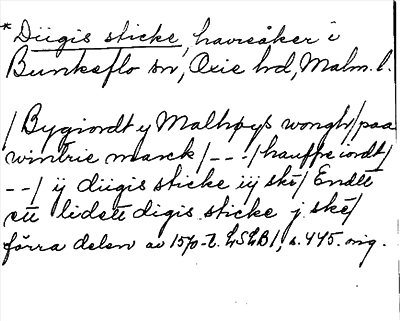 *Diigis sticke, havreåker i
Bunkeflo sn, Oxie hd, Malm. l.
/Bygiordt y Malhøys wongh/paa
wintrie marck/---/hauffre iordt/
--/ ij diigis sticke iij ske/ Endtt
ett lidett digis sticke j ske/
förra delen av 1570-t. LSLB1, s. 445. orig.